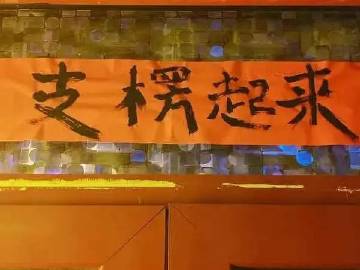 支楞起来